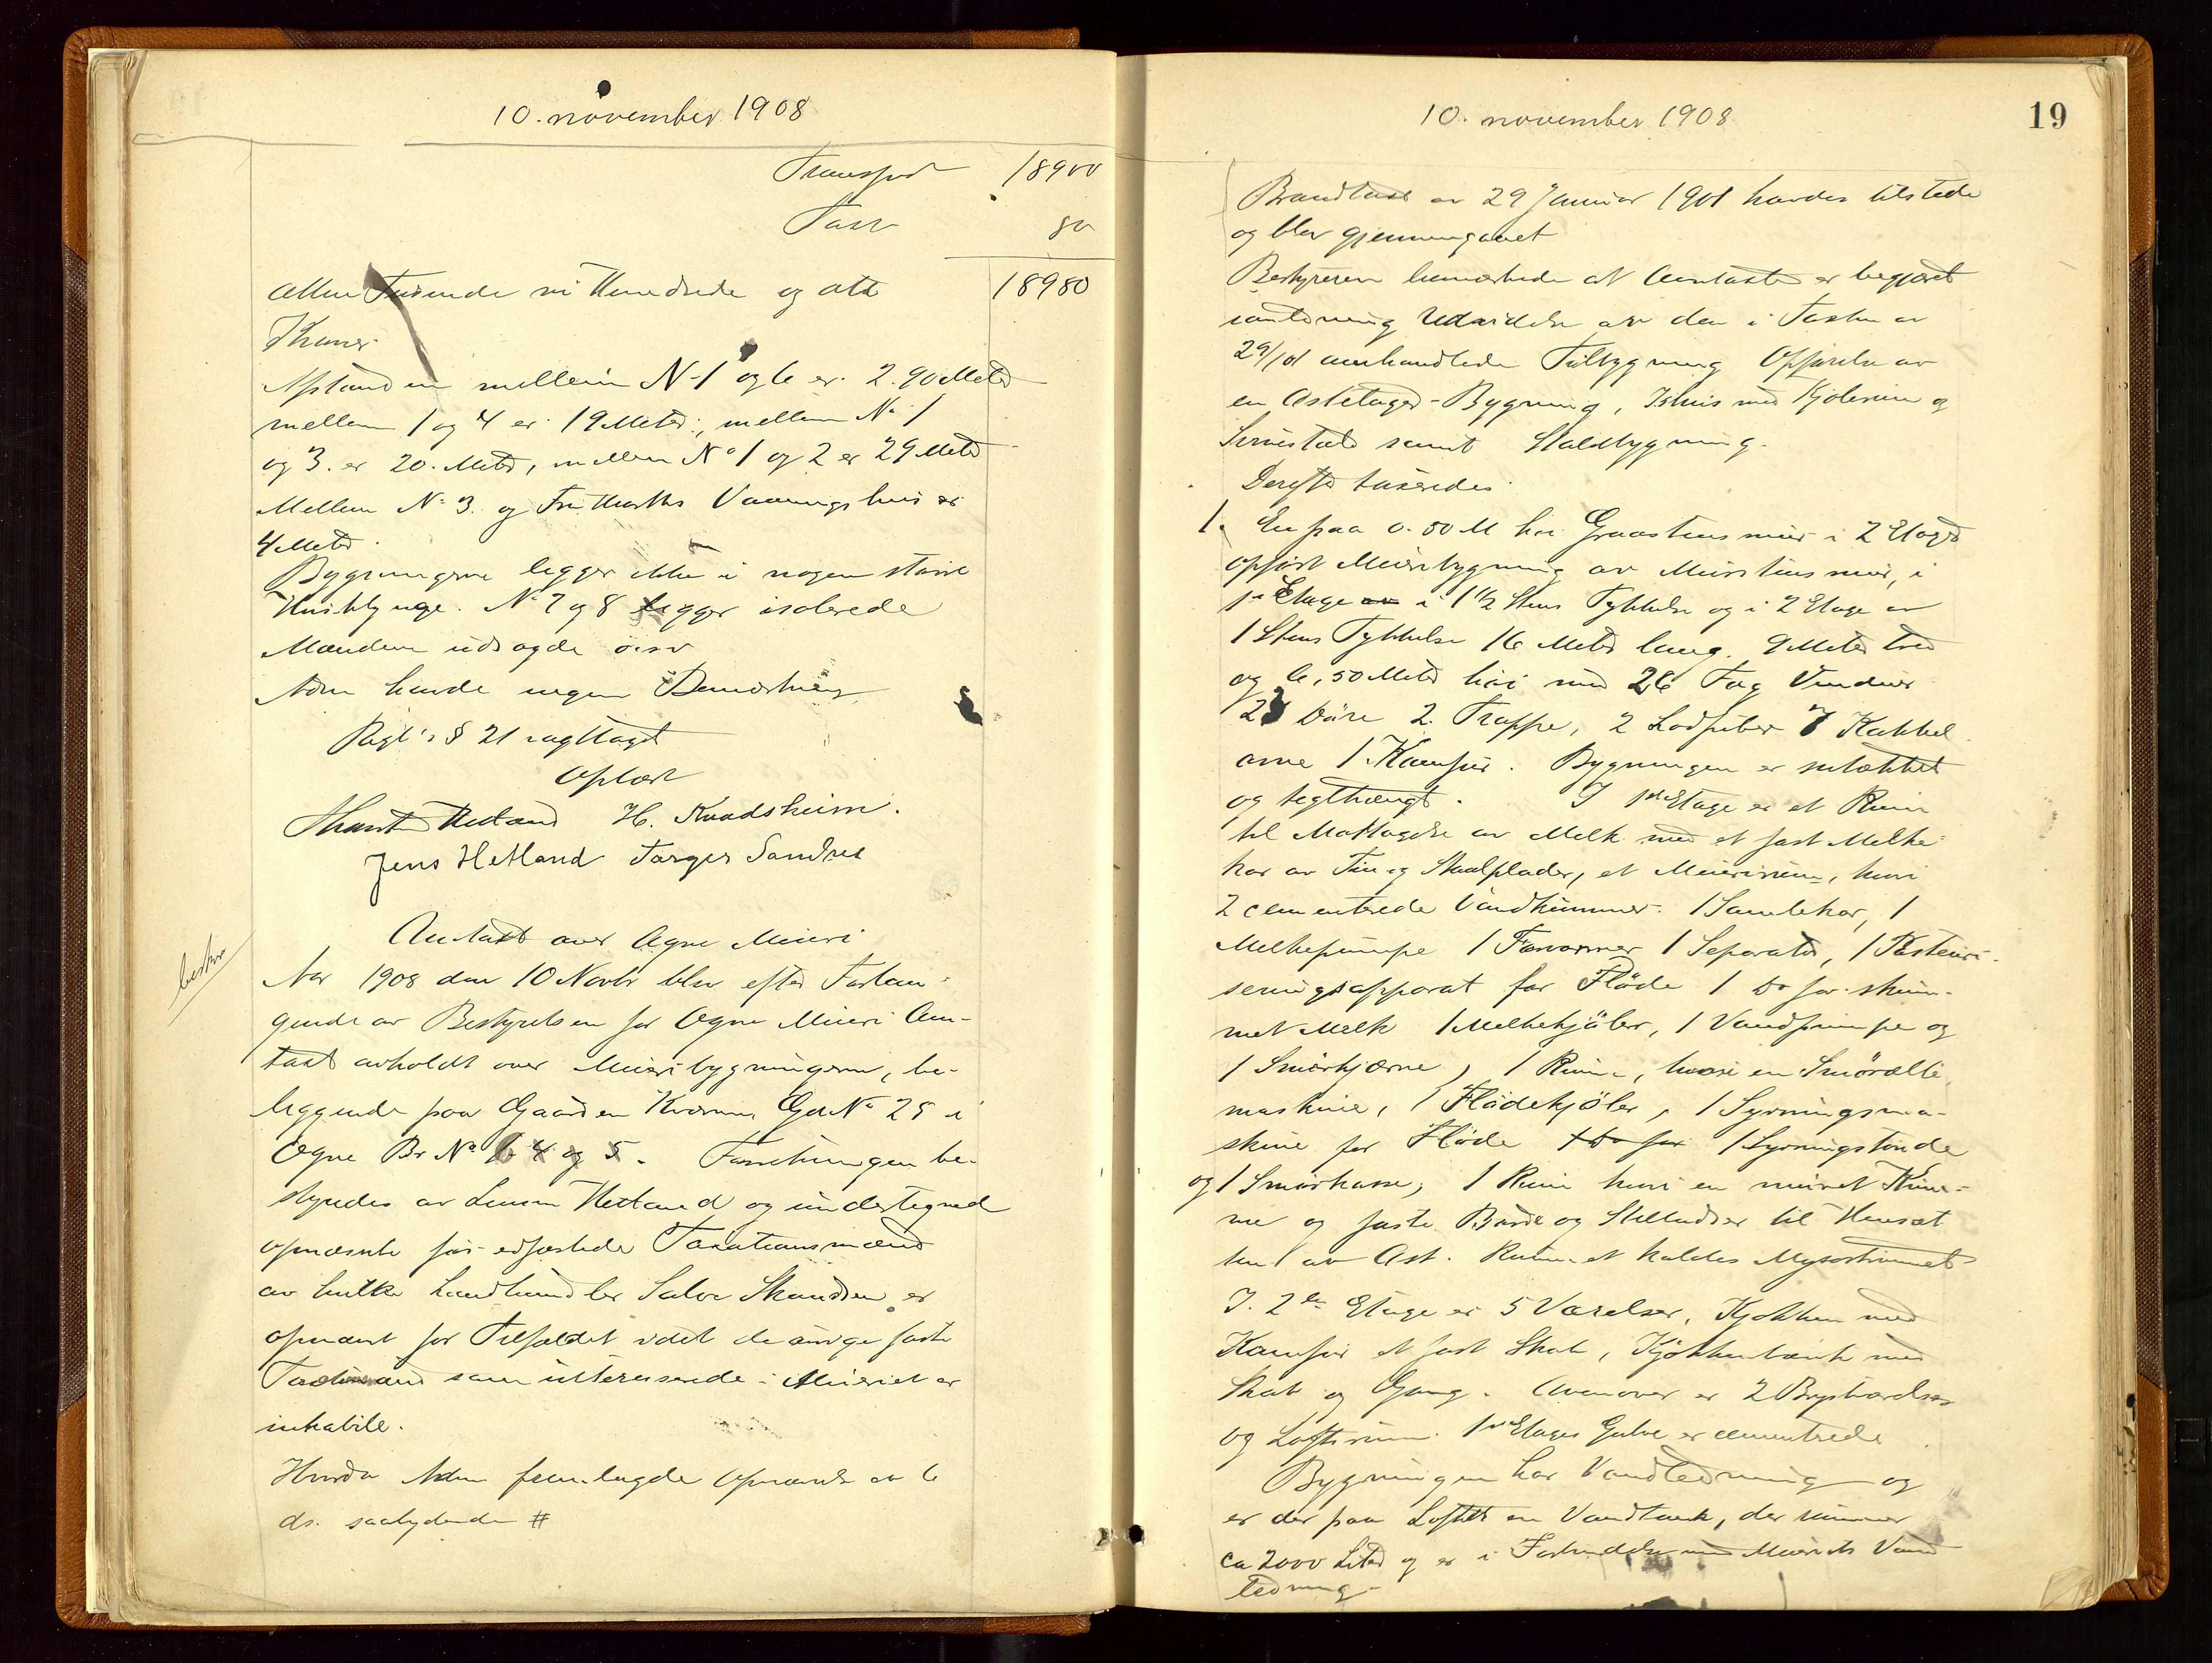 10. november 1908
Transport 18900
Taxt 80
18980
Atten Tusende ni Hundrede og otti
Kroner.
Afstanden mellem N-1 og 6 er 2.90 Meter
mellem 1 og 4 er 19 Meter, mellem No 1
og 3. er 20. Meter, mellem No 1 og 2 er 29 Meter
Mellem No 3. og Vaaningshus er
4 Meter.
Bygningerne legger ikke i nogen større
Husklynge. No 7 og 8 legger isolerede
Mændene udsagde
Adm havde ingen Bemærkning
Regl's § 21 iagttaget
Oplæst
Hetland H. Kvadsheim.
Jens Hetland Torger Sandves
Omtaxt over Ogne Meieri
Aar 1908 den 10 Novbr blev efter Forlan-
gende av Bestyrelsen for Ogne Meieri Om-
taxt avholdt over Meieribygningerne, be-
liggende paa Gaarden Gd No 29 i
Ogne Br No 4 og 5. Forretningen be-
styredes av Lensm Hetland og undertegned
opnævnte før edfæstede Taxationsmænd
av hvilke Landhandler Salve Skandsen er
opnævnt for Tilfældet idet de øvrige faste
Taxtmænd som interesserede i Meieriet er
inhabile.
Hvorda Adm fremlagde Opnævnelse av 6
ds. saalydende #
10. november 1908
19
Brandtaxt av 29 Januar 1901 havdes tilstede
og blev gjennemgaaet
Bestyreren bemærkede at Omtaxt er begjæret
Udvidelse av den i Taxten av
29/1 01 omhandlede Tilbygning Opførelse av
en Ostelager-Bygning, Ishus med Kjølerum og
samt Staldbygning.
Derefter taxeredes
1. En paa 0.50 M høi Graastensmur i 2 Etager
opført Meieribygning av Murstensmur, i
1ste Etage av i 1 1/2 Stens Tykkelse og i 2 Etage av
1 Stens Tykkelse 16 Meter lang. 9 Meter bred
og 6,50 Meter høi med 26 Fag Vinduer
Døre 2. Trappe, 2 Lodpiber 7 Kakkel
ovne 1 Komfur. Bygningen er
og teglhængt. I 1ste Etage er et Rum
til Mottagelse av Melk med et fast Melke-
kar av Tin og Staalplader, et Meierirum, hvori
2 cementerede Vandkummer. 1 Samlekar, 1
Melkepumpe 1 Forvarmer 1 Separator, 1 Pasteuri-
seringsapparat for Fløde 1 Do for skum-
met Melk 1 Melkekjøler, 1 Vandpumpe og
1 Smørkjærne, 1 Rum, hvori en Smørælte
maskine, 1 Flødekjøler, 1 Syrningsma-
skine for Fløde 1 Do for 1 Syrningstønde
og 1 Smørkasse, 1 Rum hvori en muret Kum-
me og faste Borde og Stilladser til Hensæt
ten av Ost. Rummet kaldes Mysostrummet
I. 2den Etage er 5 Værelser, Kjøkken med
Komfur et fast Skab, Kjøkkenbænk med
Skab og Gang. Ovenover er 2 Brystværelser
og Loftsrum. 1ste Etages Gulve er cementerede
Bygningen har Vandledning og
er der paa Loftet en Vandtank, der rummer
ca 2000 Liter og er i Forbindelse med Meieriets Vand
ledning-